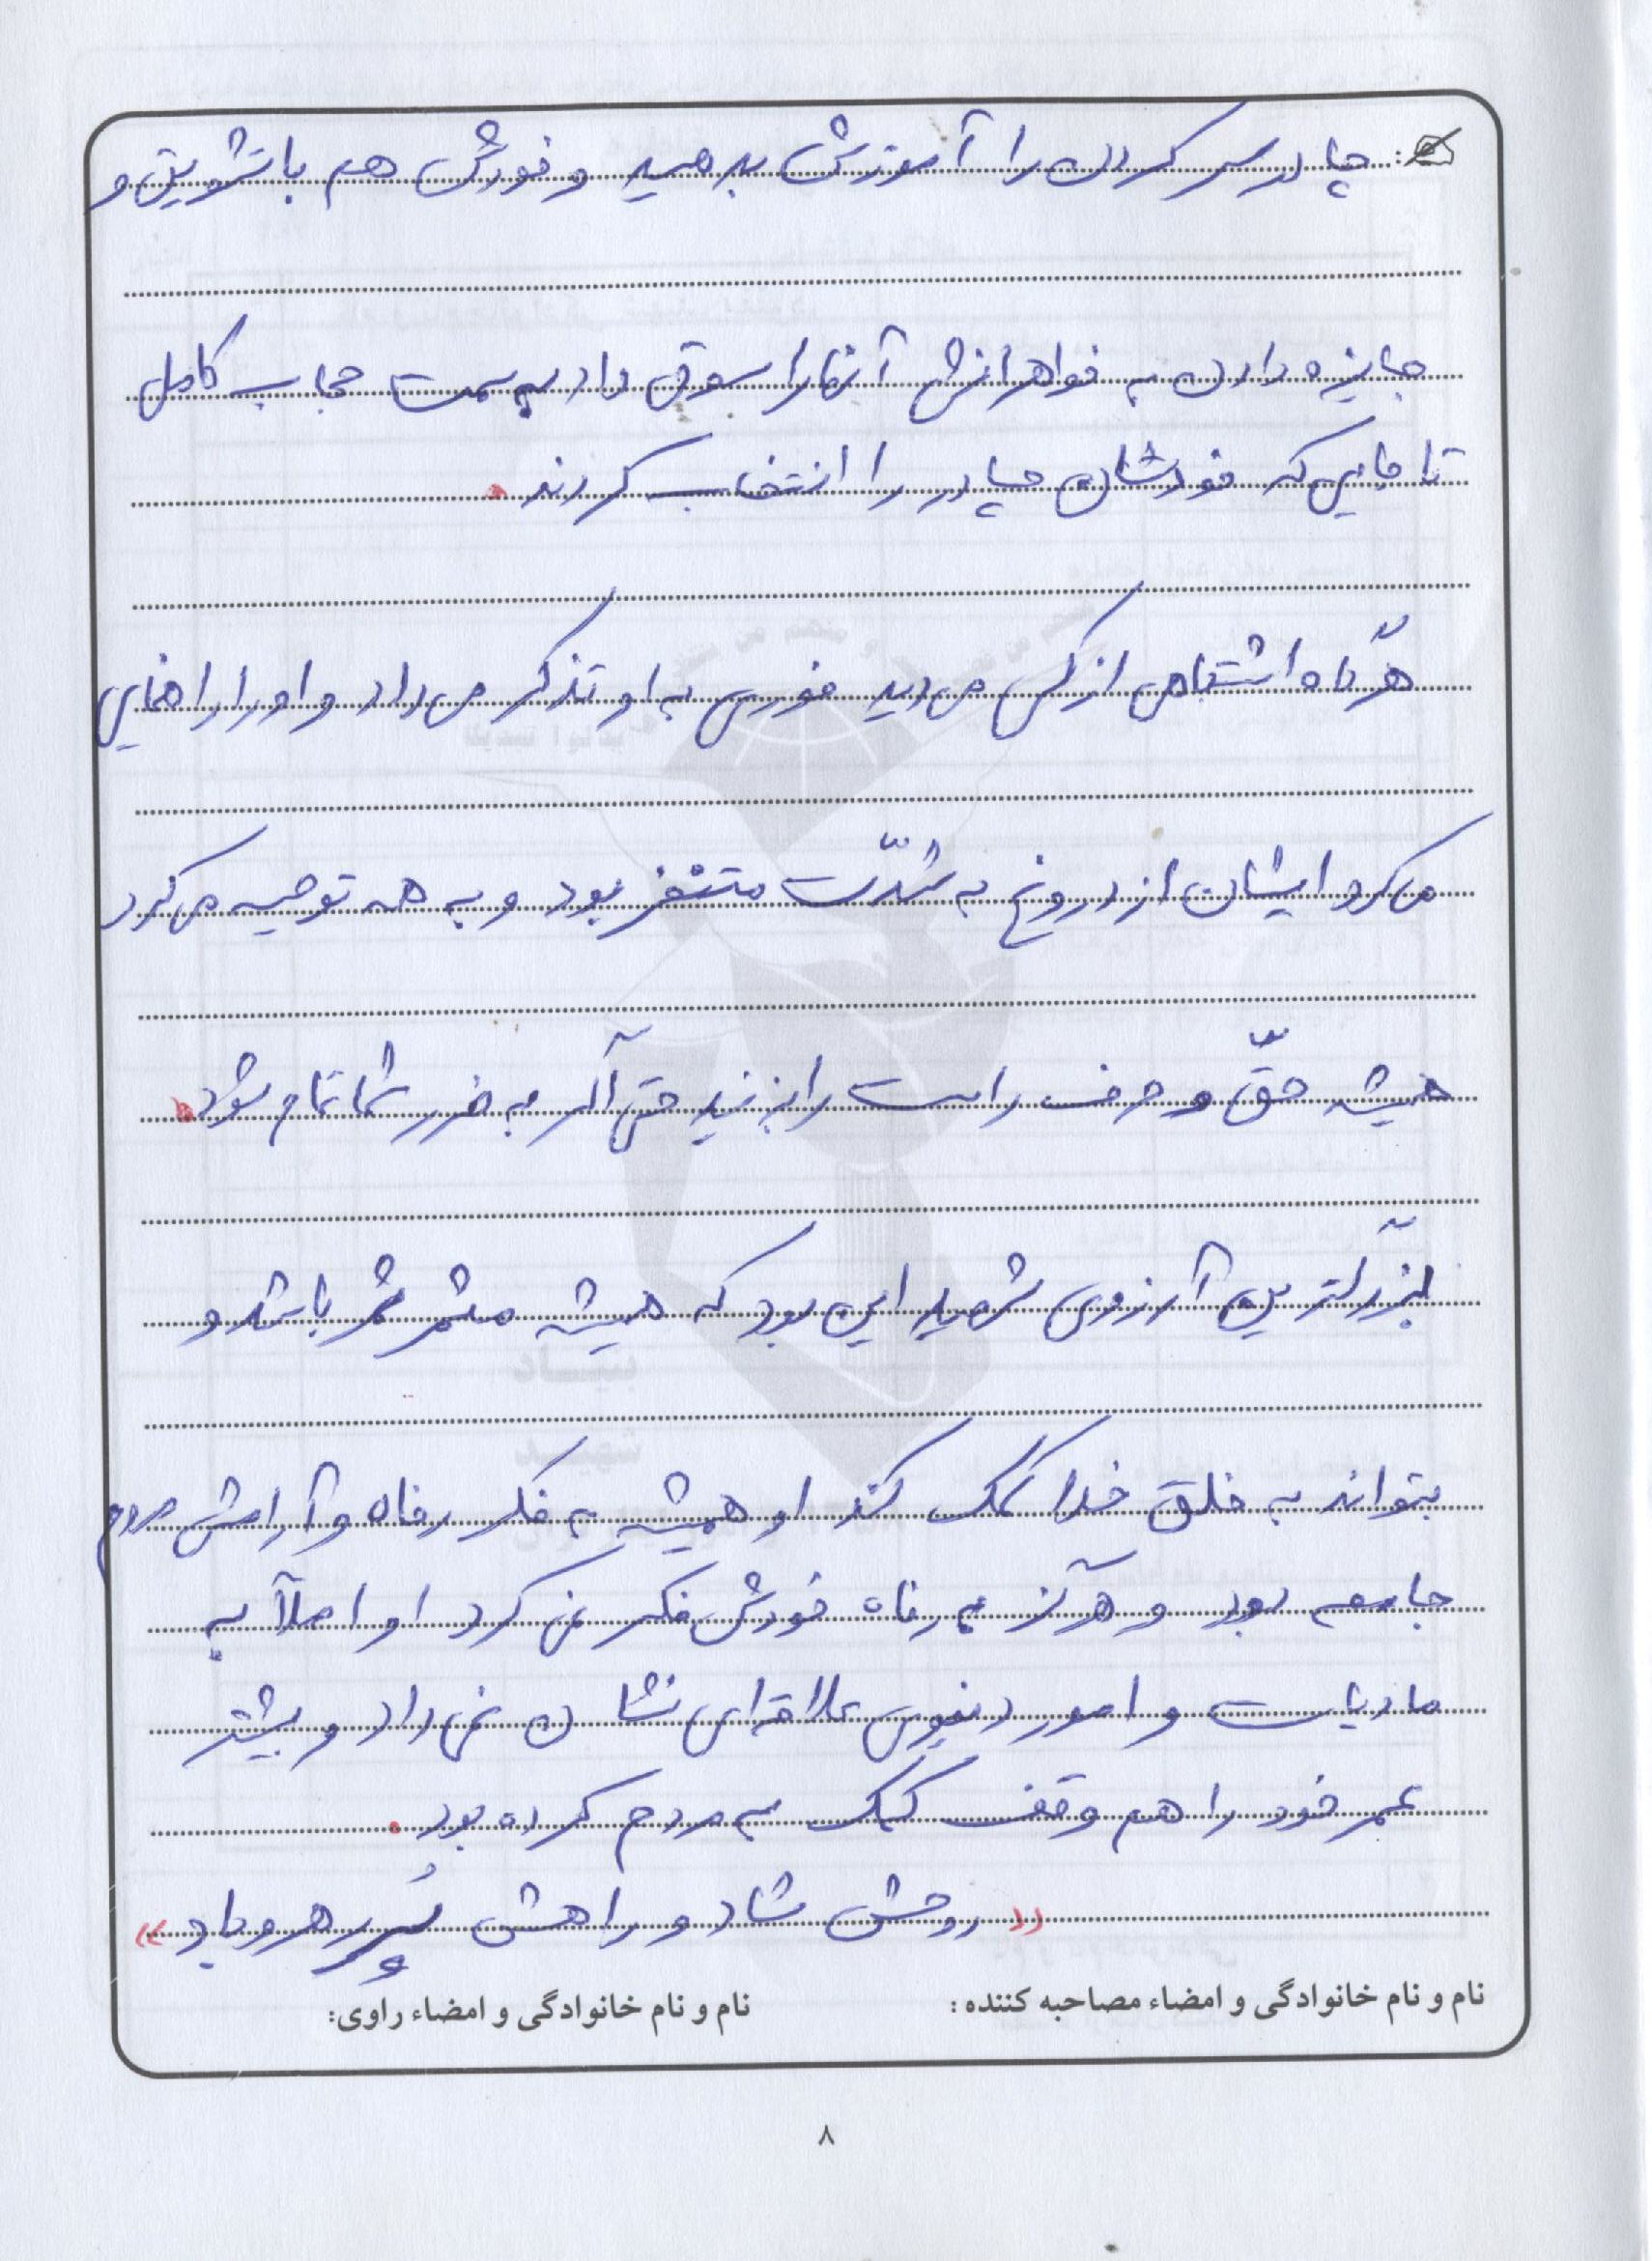 چادر سر کردن را آموزش بدهید و خودش هم با تشویق و
جایزه دادن به خواهرانش آنها را سوق داد به سمت حجاب کامل
تا جایی که خودشان چادر را انتخاب کردند.
هرگاه اشتباهی از کسی می‌دید فوری به او تذکر می‌داد و او را راهنمایی
می‌کرد ایشان از دروغ به شدّت متنفر بود و به همه توصیه می‌کرد
همیشه حقّ و حرف راست را بزنید حتی اگر به ضرر شما تمام شود.
بزرگترین آرزوی شهید این بود که همیشه مثمر ثمر باشد و
بتواند به خلق خدا کمک کند او همیشه به فکر رفاه و آرامش مردم
جامعه بود و هرگز به رفاه خودش فکر نمی‌کرد او اصلاً به
مادیات و امور دنیوی علاقه‌ای نشان نمی‌داد و بیشتر
عمر خود را هم وقف کمک به مردم کرده بود.
«روحش شاد و راهش پُر رهرو باد»
نام و نام خانوادگی و امضاء مصاحبه کننده:
نام و نام خانوادگی و امضاء راوی:
۸